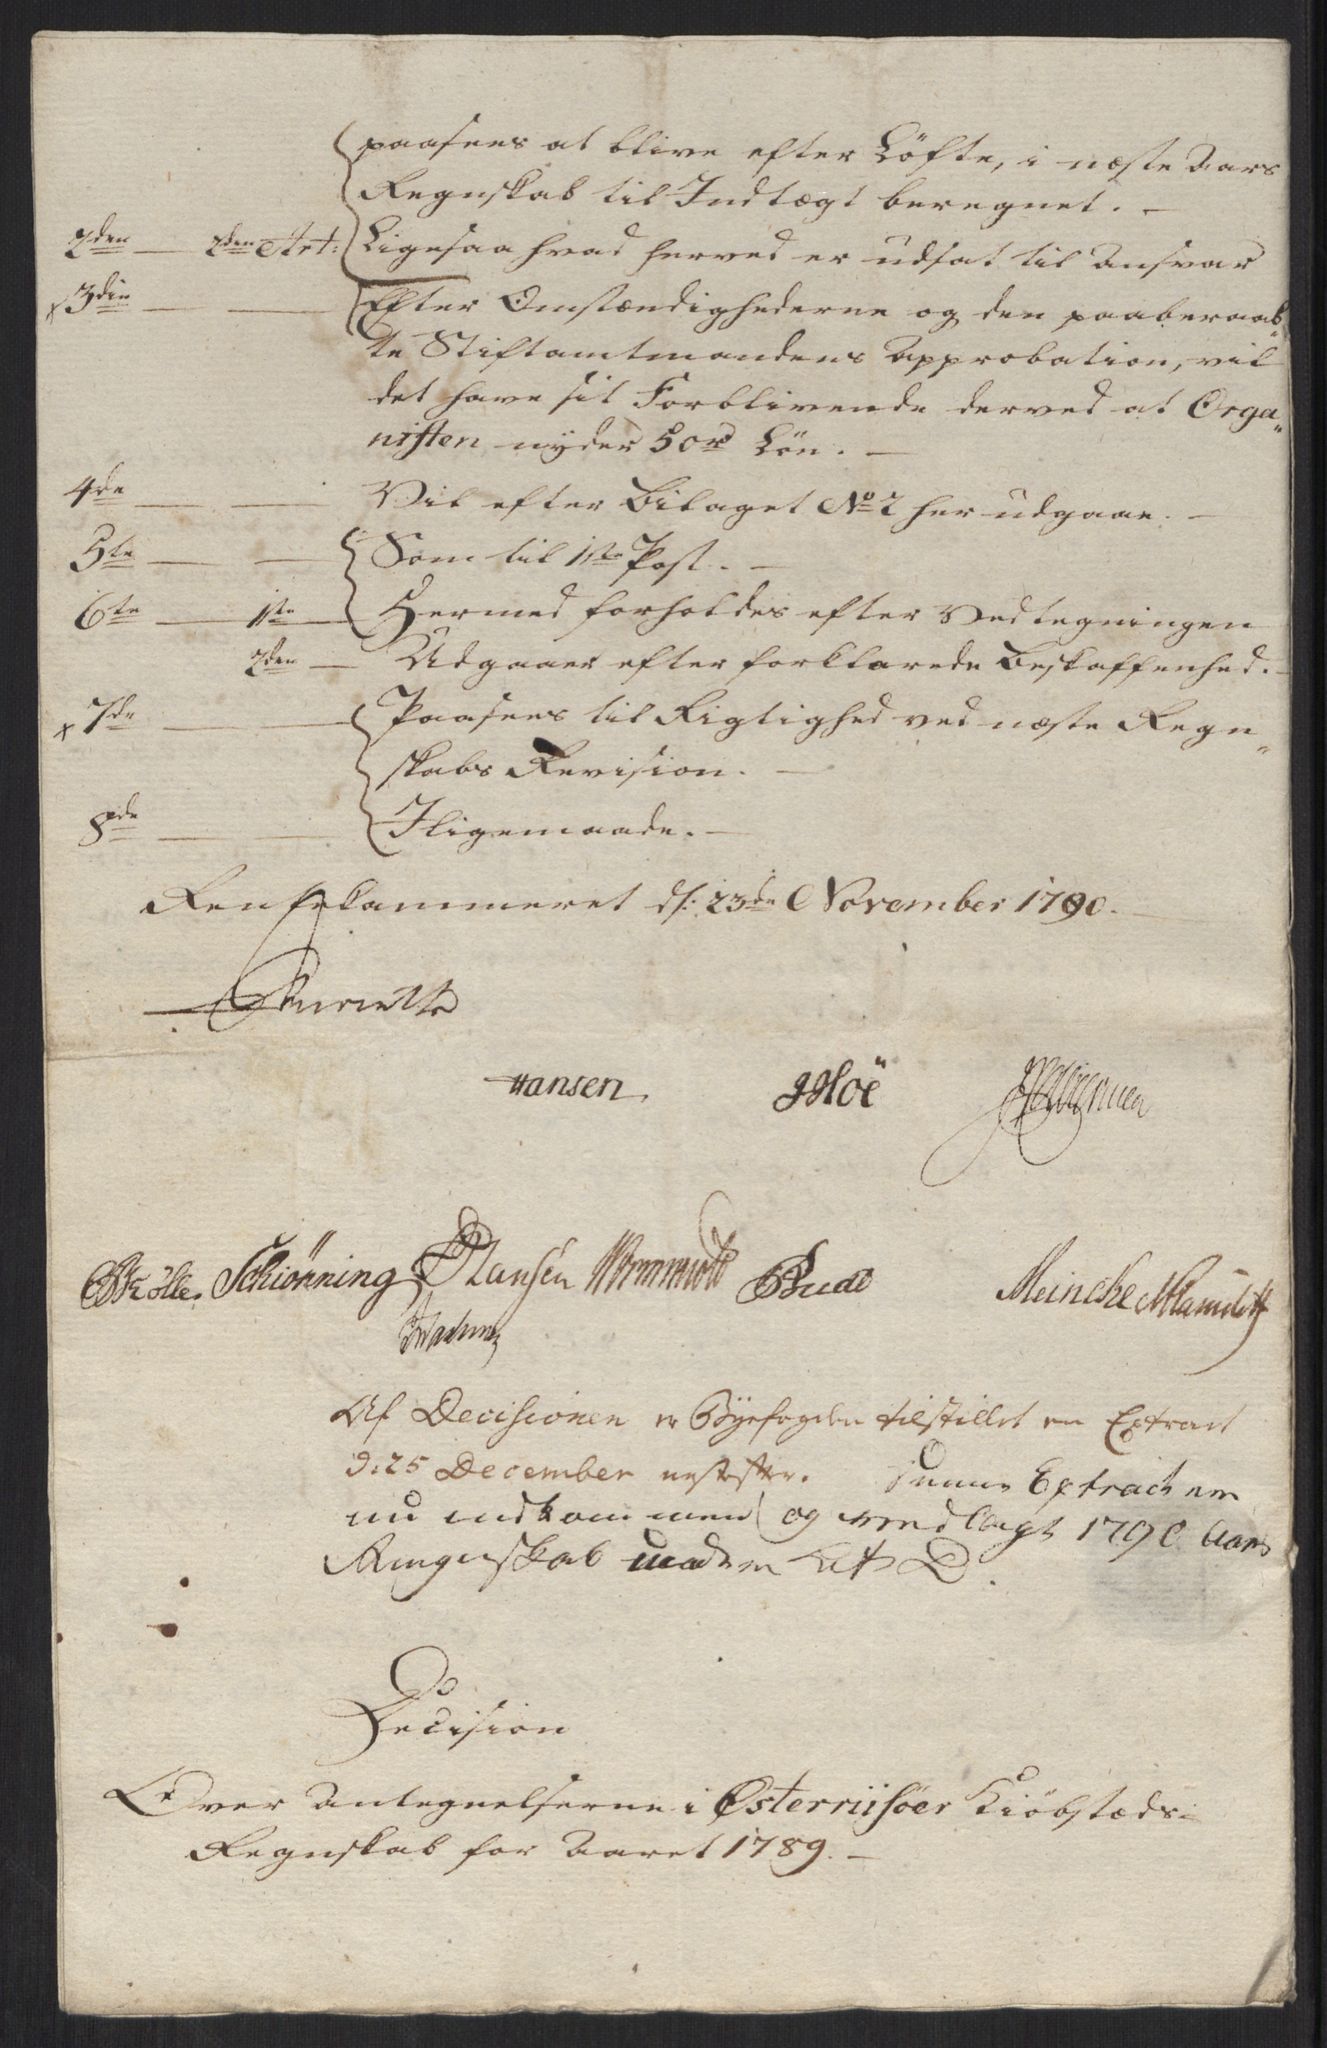 paasees at blive efter Løfte, i næste Aars
Regnskab til Indtægt beregnet. —
2den — 2den Art: Ligesaa hvad herved er udsat til Ansvar
x 3die — — Efter Omstændighederne og den paaberaab„
te Stiftamtmandens Approbation, vil
det have sit Forblivende derved at Orga„
nisten nÿder 50 rd Løn. —
4de — — Vil efter Bilaget No 2 her udgaae. —
5te — — Som til 1ste Post. —
6te — 1ste — Hermed forholdes efter Vedtegningen
2den — Udgaaer efter forklarede Beskaffenhed. —
x 7de — — Paasees til Rigtighed ved næste Regn„
skabs Revision. —
8de — — Iligemaade. —
Rentekammeret d: 23de November 1790. —
Hansen. Hoë
Schiønning Hansen
Meincke
Af Decisionen er Bÿefogden tilstillet en Extract
d: 25 December nestefter. Denne Extract er
nu indkommen og vedlagt 1790 Aars
Regnskab under Lit D.
Decision
Over Antegnelserne i Østerriisøer Kiøbstæds-
Regnskab for Aaret 1789. —